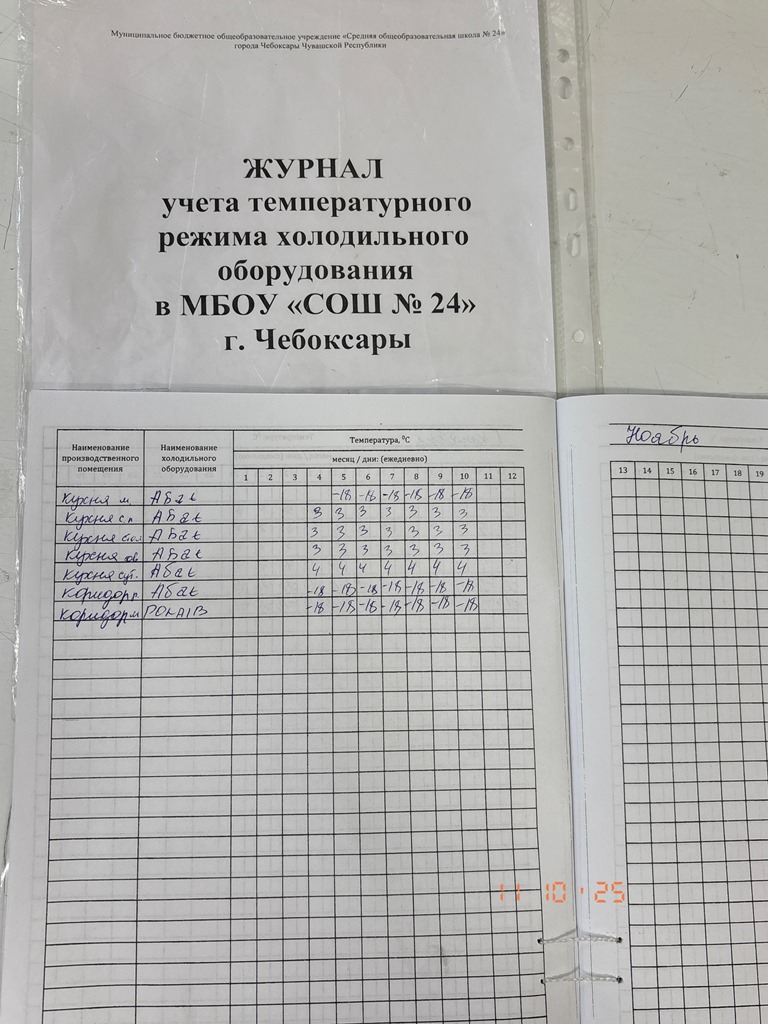 Муниципальное бюджетное общеобразовательное учреждение «Средняя общеобразовательная школа № 24»
города Чебоксары Чувашской Республики
ЖУРНАЛ
учета температурного
режима холодильного
оборудования
в МБОУ «СОШ № 24»
г. Чебоксары
Наименование производственного помещения
Наименование холодильного оборудования
Температура, ⁰С
месяц / дни: (ежедневно)
1 2 3 4 5 6 7 8 9 10 11 12
Кухня м. Абат -18 -18 -18 -18 -18 -18
Кухня с.п Абат 3 3 3 3 3 3 3
Кухня Абат 3 3 3 3 3 3 3
Кухня Абат 3 3 3 3 3 3 3
Кухня сут. Абат 4 4 4 4 4 4 4
Коридор Абат -18 -18 -18 -18 -18 -18 -18
Коридор м POLAIR -18 -18 -18 -18 -18 -18 -18
Ноябрь
13 14 15 16 17 18 19
11 10 '25